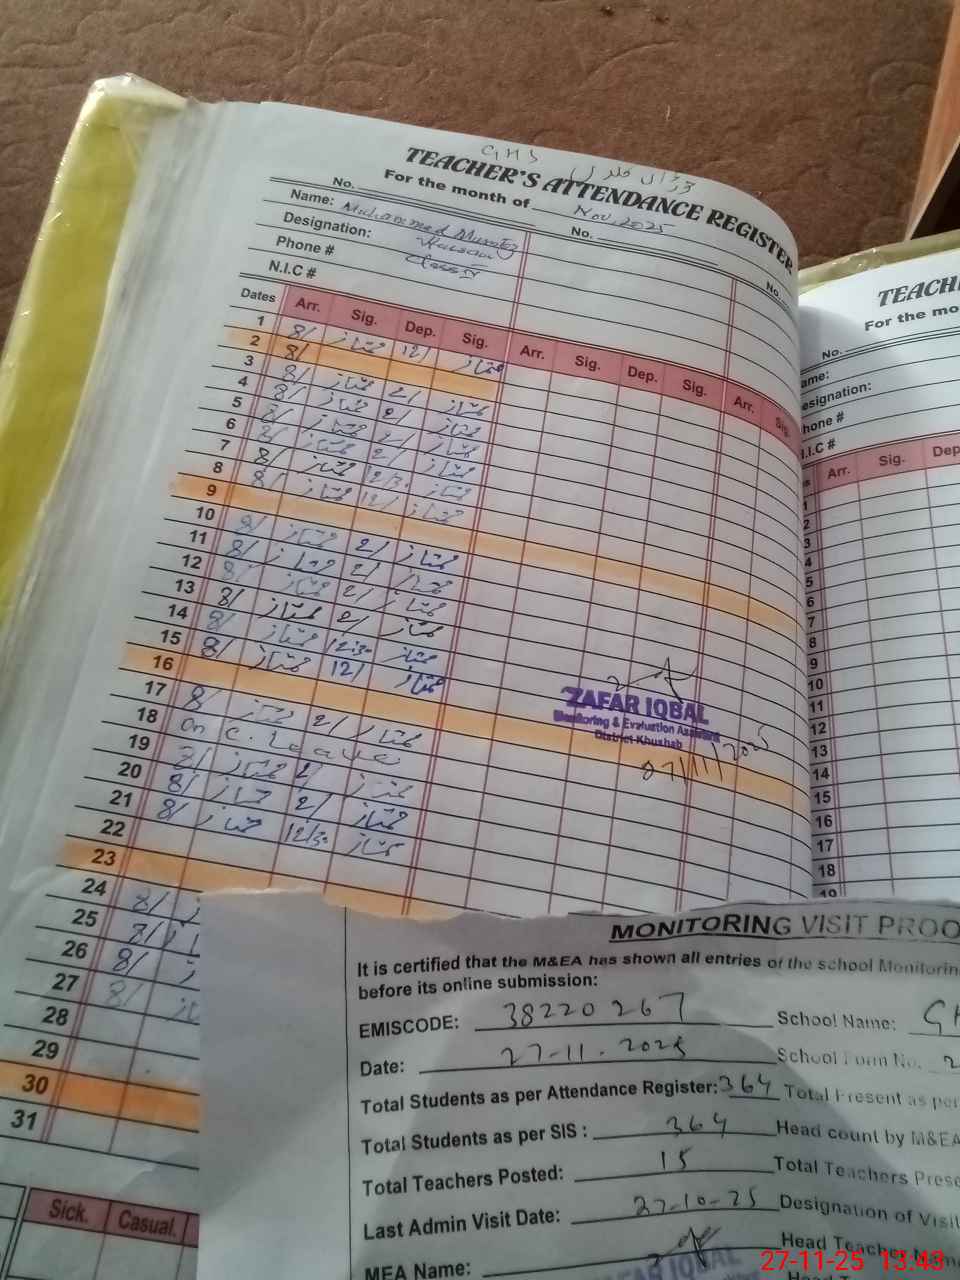 GHS
TEACHER'S ATTENDANCE REGISTER
For the month of Nov, 2025
No. No. No.
Name: Muhammad Mumtaz
Hassan
Designation: Class IV
Phone #
N.I.C #
Dates Arr. Sig. Dep. Sig. Arr. Sig. Dep. Sig. Arr. Sig.
1 8/ ممتاز 12/ ممتاز
2 8/
3 8/ ممتاز 2/ ممتاز
4 8/ ممتاز 2/ ممتاز
5 8/ ممتاز 2/ ممتاز
6 8/ ممتاز 2/ ممتاز
7 8/ ممتاز 12/30 ممتاز
8 8/ ممتاز 12/ ممتاز
9
10 8/ ممتاز 2/ ممتاز
11 8/ ممتاز 2/ ممتاز
12 8/ ممتاز 2/ ممتاز
13 8/ ممتاز 2/ ممتاز
14 8/ ممتاز 12:30 ممتاز
15 8/ ممتاز 12/ ممتاز
16
17 8/ ممتاز 2/ ممتاز
18 On C. Leave
19 8/ ممتاز 2/ ممتاز
20 8/ ممتاز 2/ ممتاز
21 8/ ممتاز 12/30 ممتاز
22
23
24 8/
25 8/
26 8/
27 8/
28
29
30
31
Sick. Casual.
ZAFAR IQBAL
Monitoring & Evaluation Assistant
District Khushab
07/11/2025
TEACH
For the mo
No.
ame:
esignation:
hone #
I.I.C #
s Arr. Sig. Dep
1
2
3
4
5
6
7
8
9
10
11
12
13
14
15
16
17
18
19
MONITORING VISIT PROO
It is certified that the M&EA has shown all entries of the school Monitorin
before its online submission:
EMISCODE: 38220267 School Name: GH
Date: 27-11-2025 School Form No. 2
Total Students as per Attendance Register: 364 Total Present as per
Total Students as per SIS : 364 Head count by M&EA
Total Teachers Posted: 15 Total Teachers Prese
Last Admin Visit Date: 27-10-25 Designation of Visit
MEA Name: Head Teacher Nam
ZAFAR IQBAL
27-11-25 13:43